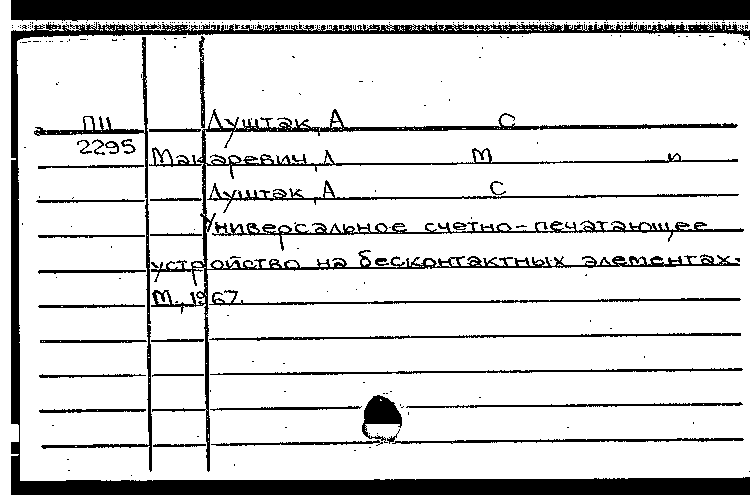 П11 Луштак, А С
2295 Макаревич, Л М и
Луштак, А С
Универсальное счетно-печатающее
устройство на бесконтактных элементах.
М., 1967.